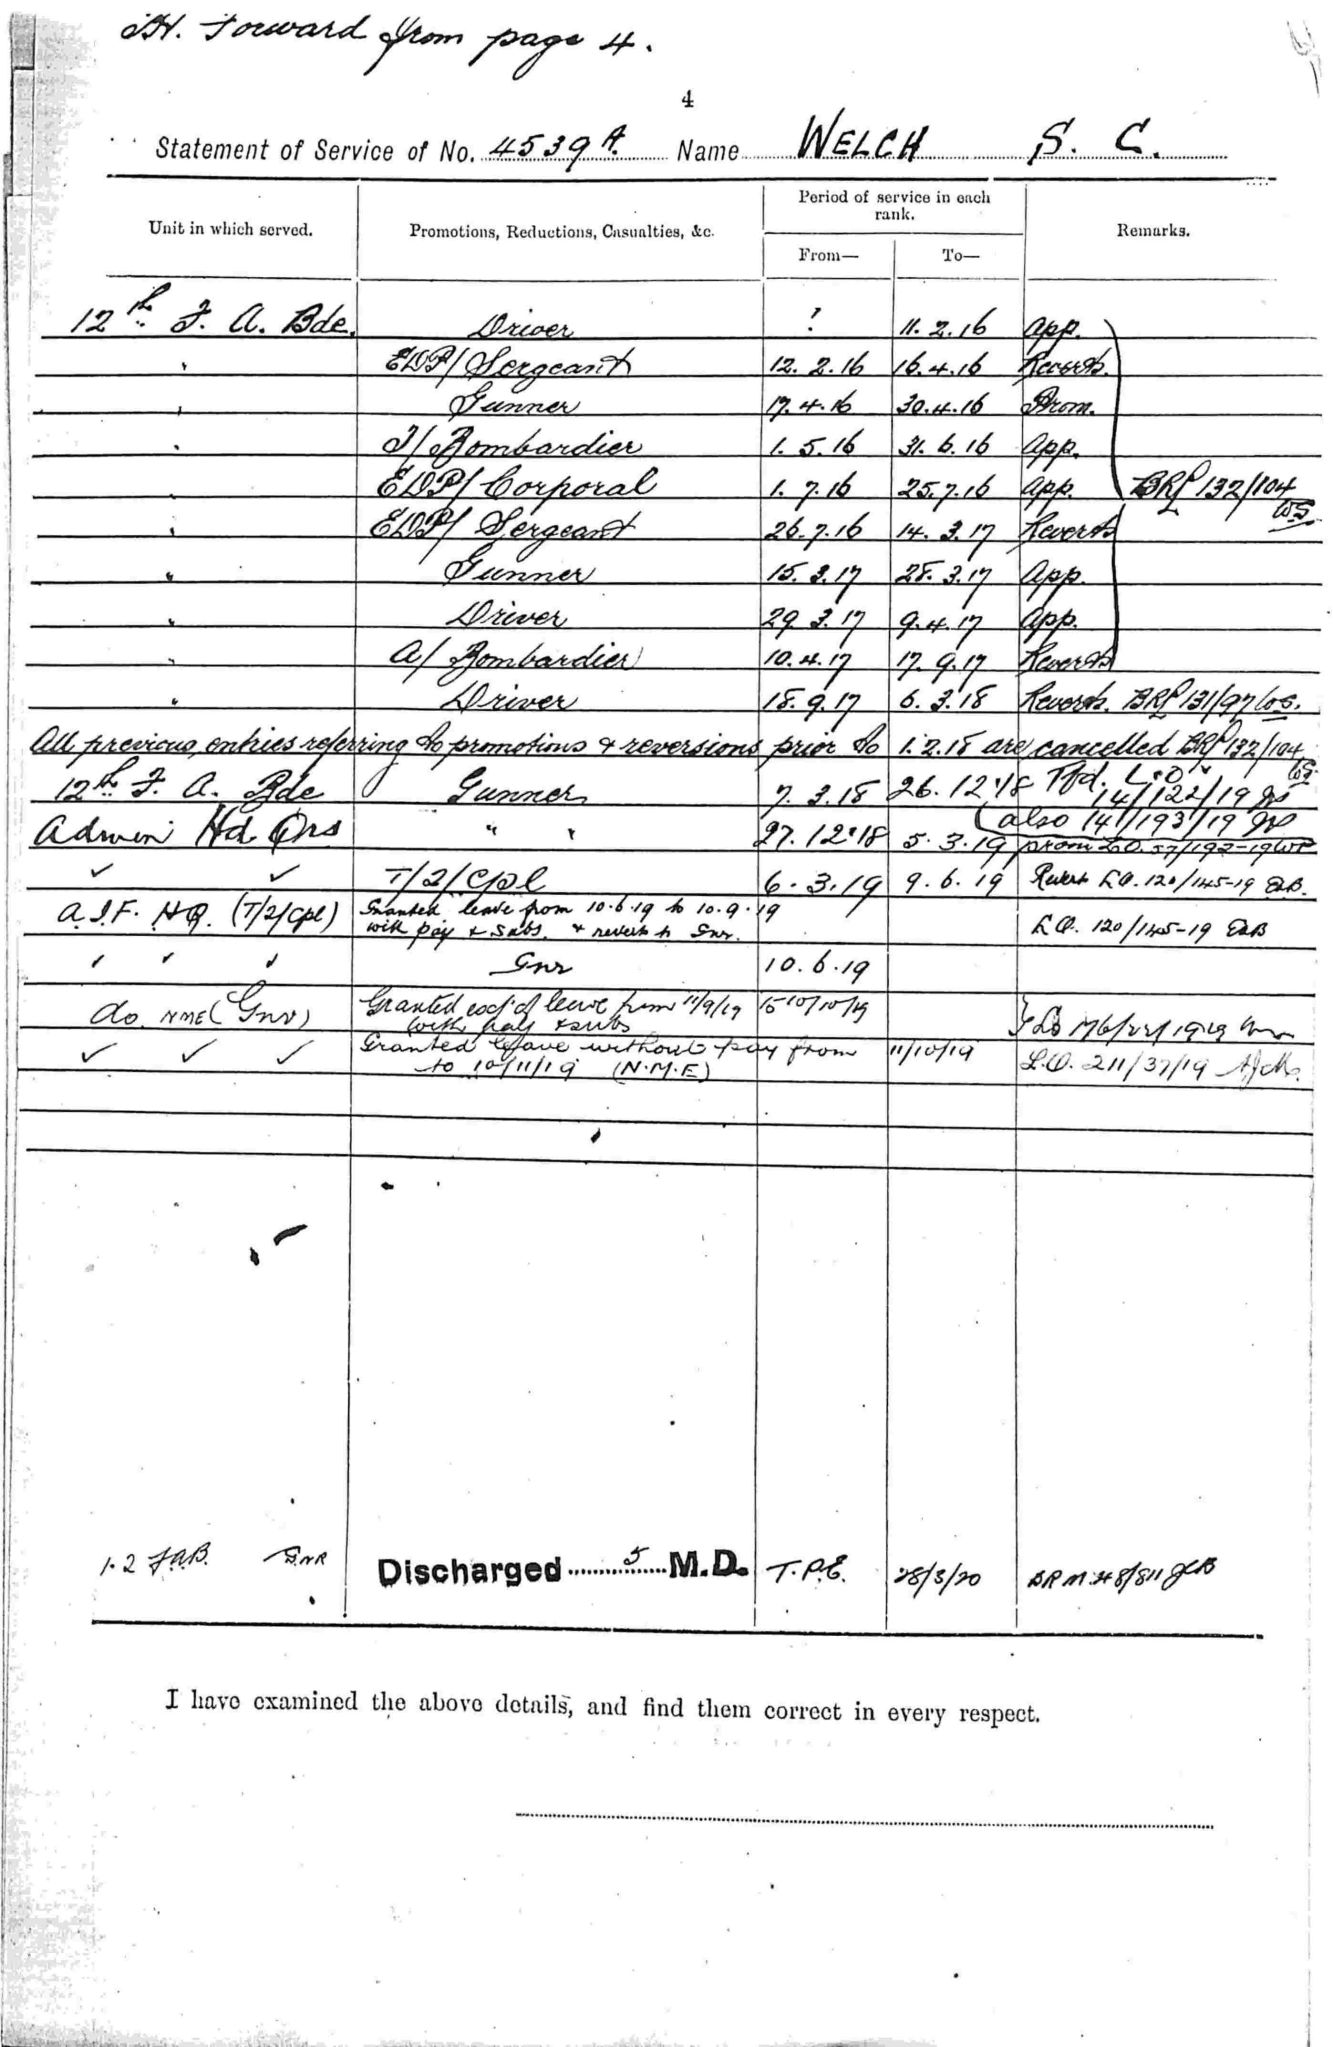 Forward from page 4.
4
Statement of Service of No. 4539 A. Name WELCH S. C.
Unit in which served. Promotions, Reductions, Casualties, &c. Period of service in each rank. Remarks.
From— To—
12th F. A. Bde. Driver ? 11.2.16 App.
" EDP/ Sergeant 12.2.16 16.4.16 Reverts.
" Gunner 17.4.16 30.4.16 Prom.
" T/ Bombardier 1.5.16 31.6.16 App.
" EDP/ Corporal 1.7.16 25.7.16 App. BRP 132/104
WS.
" EDP/ Sergeant 26.7.16 14.3.17 Reverts
" Gunner 15.3.17 28.3.17 App.
" Driver 29.3.17 9.4.17 App.
" A/ Bombardier 10.4.17 17.9.17 Reverts
" Driver 18.9.17 6.3.18 Reverts. BRP 131/97 WS.
All previous entries referring to promotions & reversions prior to 1.2.18 are cancelled BRP 132/104
WS.
12th F. A. Bde Gunner 7.3.18 26.12.18 Tfd. L.O.
14/122/19
(also 14/193/19
Admin Hd Qrs " " 27.12.18 5.3.19 prom L.O. 57/192-19
✓ ✓ T/2/Cpl 6.3.19 9.6.19 Revert L.O. 120/145-19
A.I.F. HQ. (T/2/Cpl) Granted leave from 10.6.19 to 10.9.19
with pay & subs. & reverts to Gnr. L.O. 120/145-19
✓ ✓ ✓ Gnr 10.6.19
do. NME (Gnr) Granted ext'd leave from 11/9/19 to 10/10/19
with pay & subs
✓ ✓ ✓ Granted leave without pay from 11/10/19 L.O. 211/37/19
to 10/11/19 (N.M.E)
12 F.A.B. GNR Discharged 5 M.D. T.P.E. 28/3/20
I have examined the above details, and find them correct in every respect.